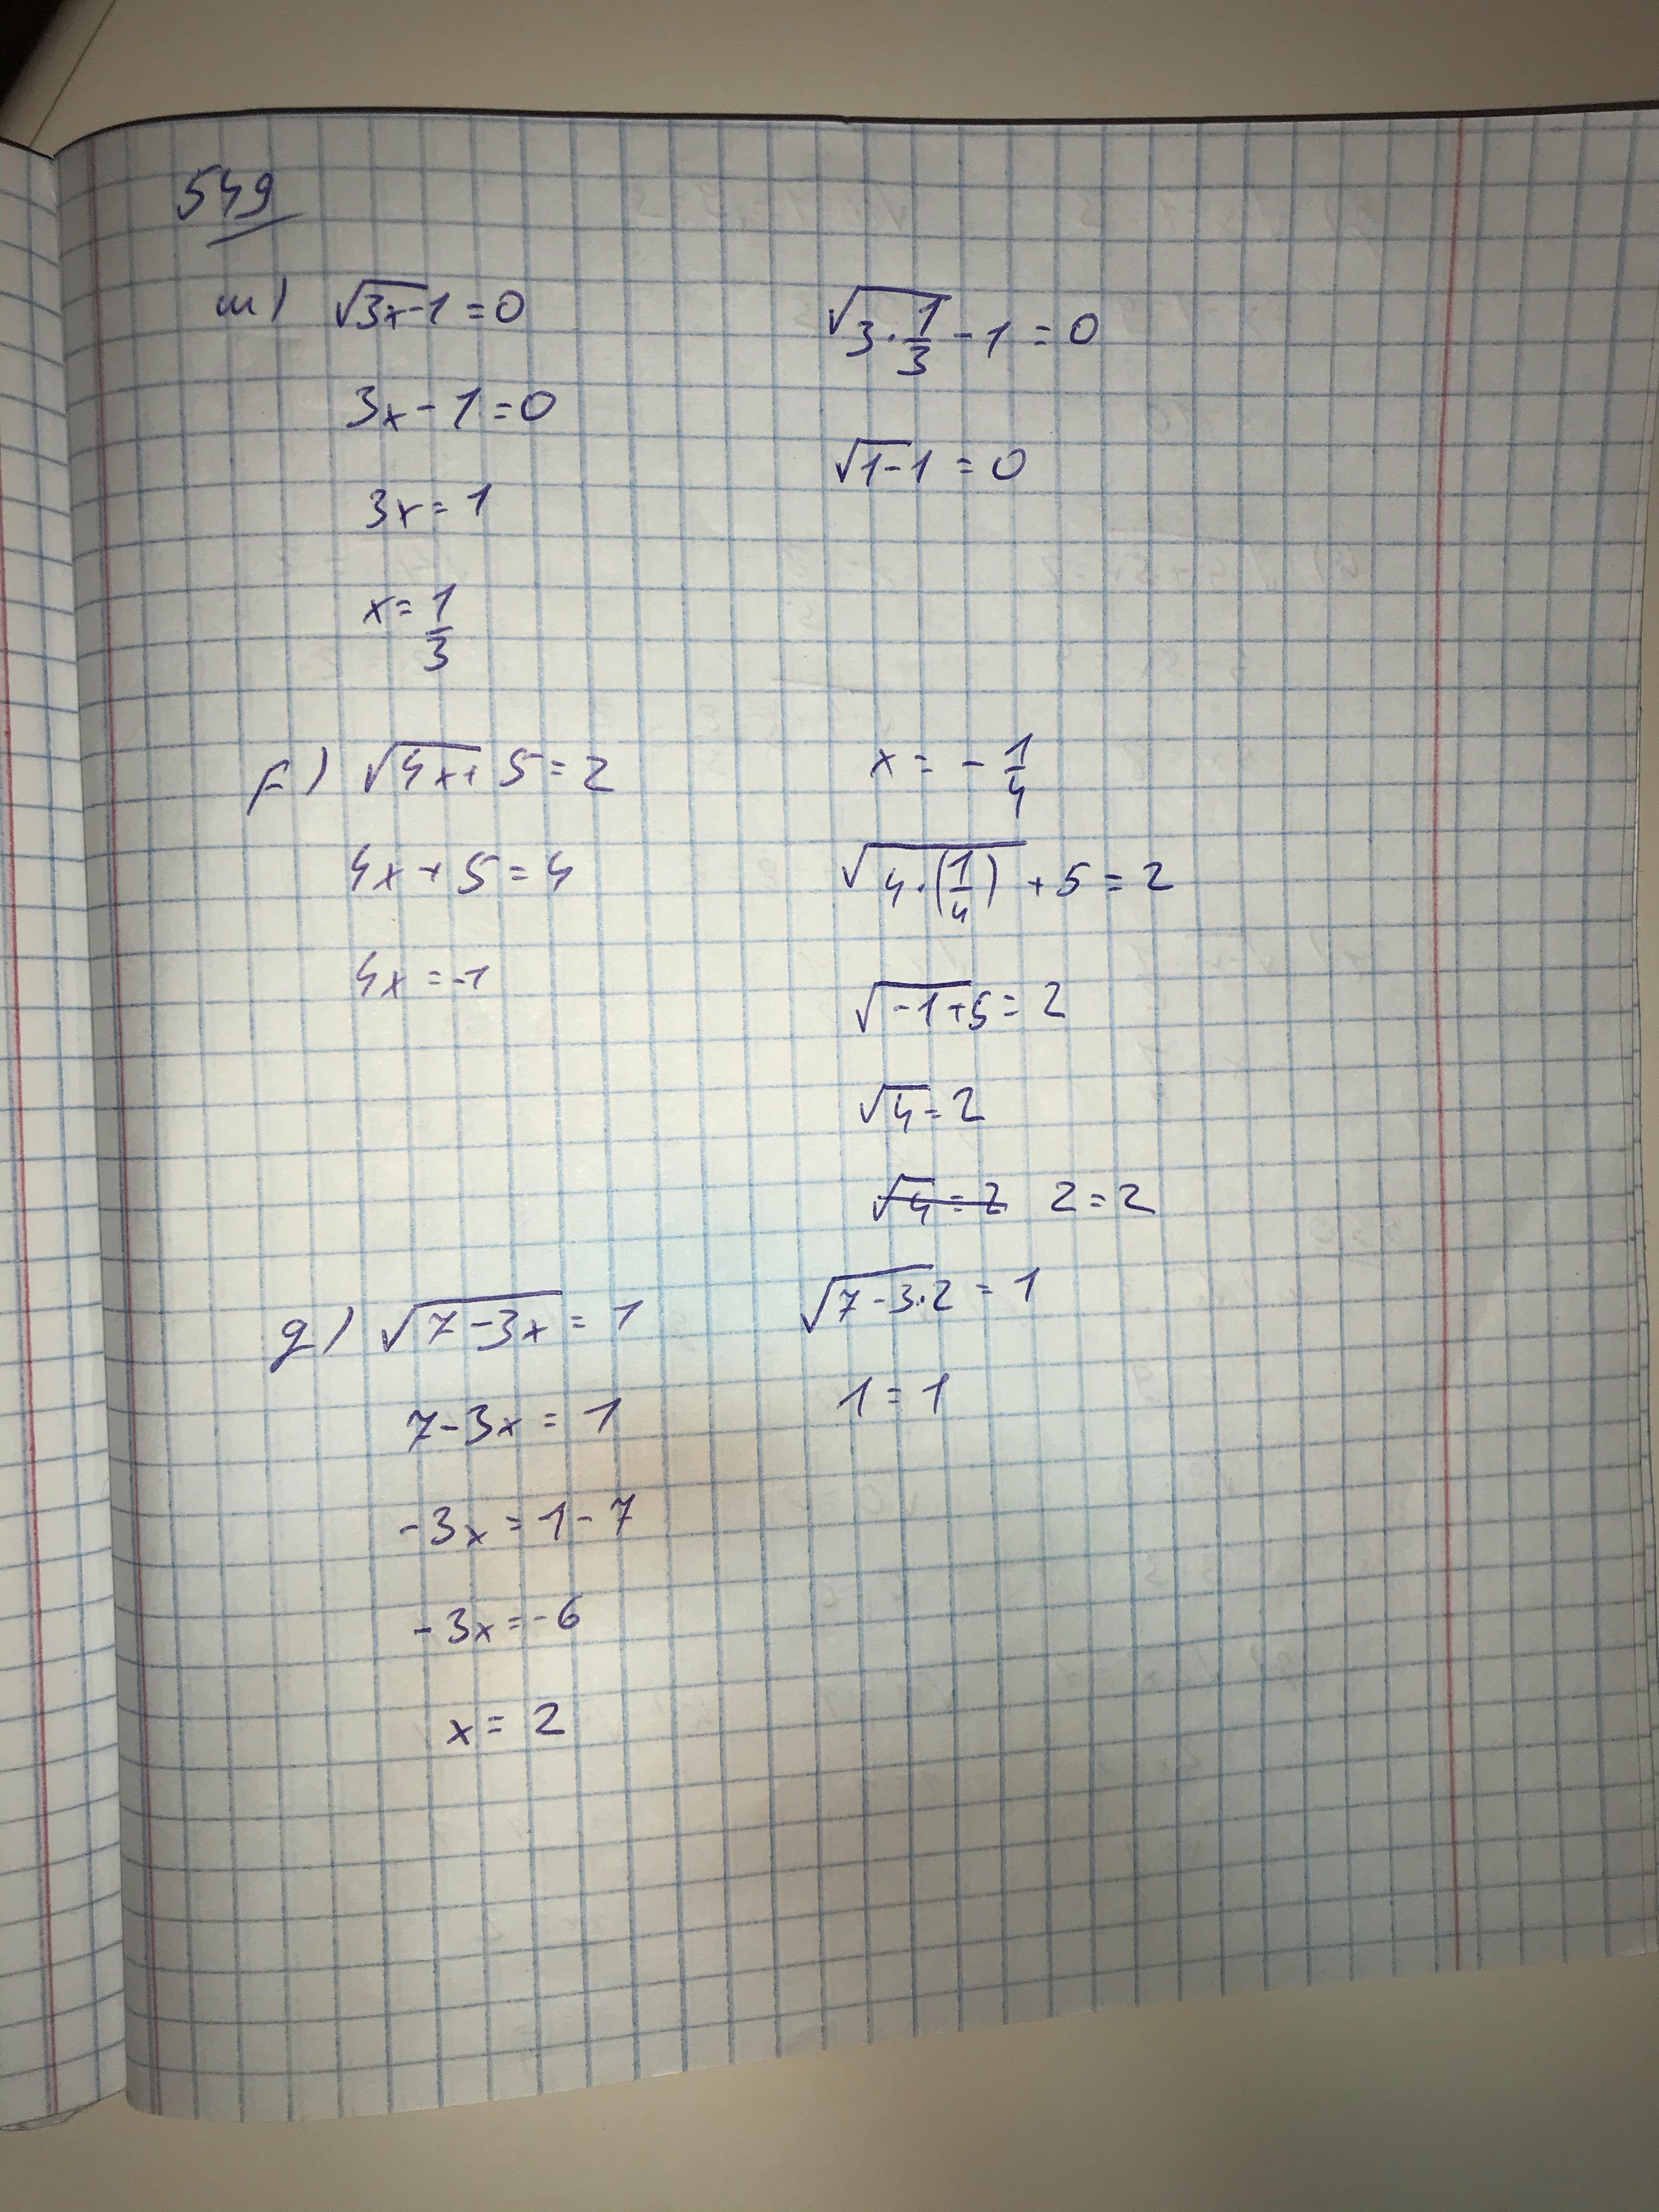 549
m) √3x-1 = 0
3x - 1 = 0
3x = 1
x = 1/3
√3·1/3 - 1 = 0
√1-1 = 0
f) √4x+5 = 2
4x + 5 = 4
4x = -1
x = - 1/4
√4·(1/4) + 5 = 2
√-1+5 = 2
√4 = 2
√4 = 2 2 = 2
g) √7-3x = 1
7-3x = 1
-3x = 1-7
-3x = -6
x = 2
√7-3·2 = 1
1 = 1